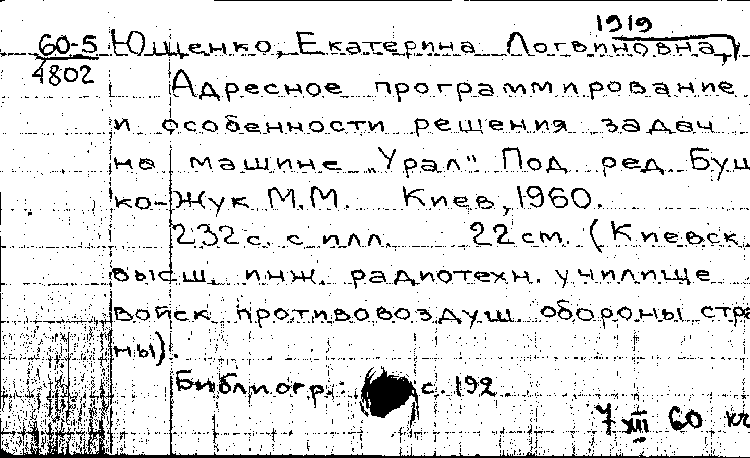 1919
60-5 Ющенко, Екатерина Логвиновна,
4802
Адресное программирование
и особенности решения задач
на машине „Урал" Под ред. Буш
ко-Жук М.М. Киев, 1960.
232с. с илл. 22 см. (Киевск.
высш. инж. радиотехн. училище
войск противовоздуш. обороны стра
ны).
Библиогр.: с. 192.
7 XII 60